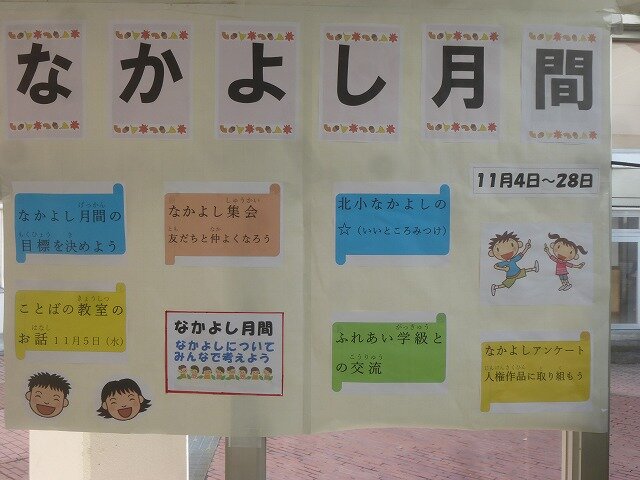 なかよし月間
11月4日～28日
なかよし月間の
目標を決めよう
なかよし集会
友だちと仲よくなろう
北小なかよしの
☆（いいところみつけ）
ことばの教室の
お話 11月5日（水）
なかよし月間
なかよしについて
みんなで考えよう
ふれあい学級と
の交流
なかよしアンケート
人権作品に取り組もう